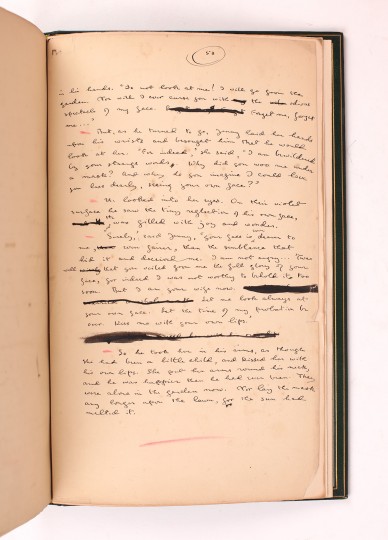 50
in his hands. "Do not look at me! I will go from the
garden. Nor will I ever curse you with the odious
spectacle of my face. Forget me, forget
me..."
But, as he turned to go, Jenny laid her hands
upon his wrists and besought him that he would
look at her. "For indeed," she said, "I am bewildered
by your strange words. Why did you woo me under
a mask? And why do you imagine I could love
you less dearly, seeing your own face?"
He looked into her eyes. On their violet
surface he saw the tiny reflection of his own face,
was filled with joy and wonder.
"Surely," said Jenny, "your face is dearer to
me, even fairer, than the semblance that
hid it and deceived me. I am not angry. 'Twas
well that you veiled from me the full glory of your
face, for indeed I was not worthy to behold it too
soon. But I am your wife now.
Let me look always at
your own face. Let the time of my probation be
over. Kiss me with your own lips.
So he took her in his arms, as though
she had been a little child, and kissed her with
his own lips. She put her arms round his neck,
and he was happier than he had ever been. They
were alone in the garden now. Nor lay the mask
any longer upon the lawn, for the sun had
melted it.